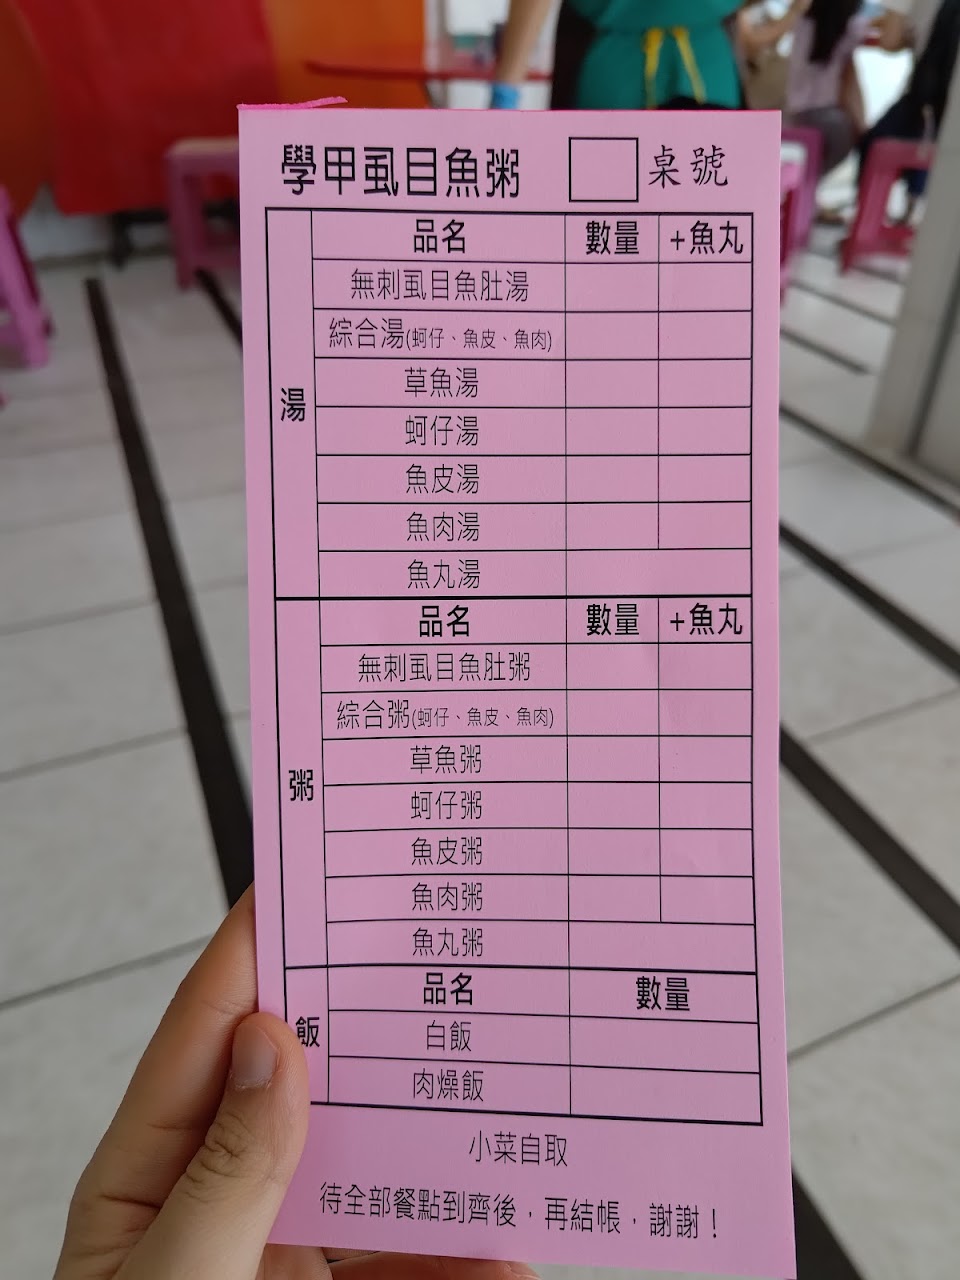 學甲虱目魚粥 桌號
湯
品名 數量 +魚丸
無刺虱目魚肚湯
綜合湯(蚵仔、魚皮、魚肉)
草魚湯
蚵仔湯
魚皮湯
魚肉湯
魚丸湯
粥
品名 數量 +魚丸
無刺虱目魚肚粥
綜合粥(蚵仔、魚皮、魚肉)
草魚粥
蚵仔粥
魚皮粥
魚肉粥
魚丸粥
飯
品名 數量
白飯
肉燥飯
小菜自取
待全部餐點到齊後，再結帳，謝謝！